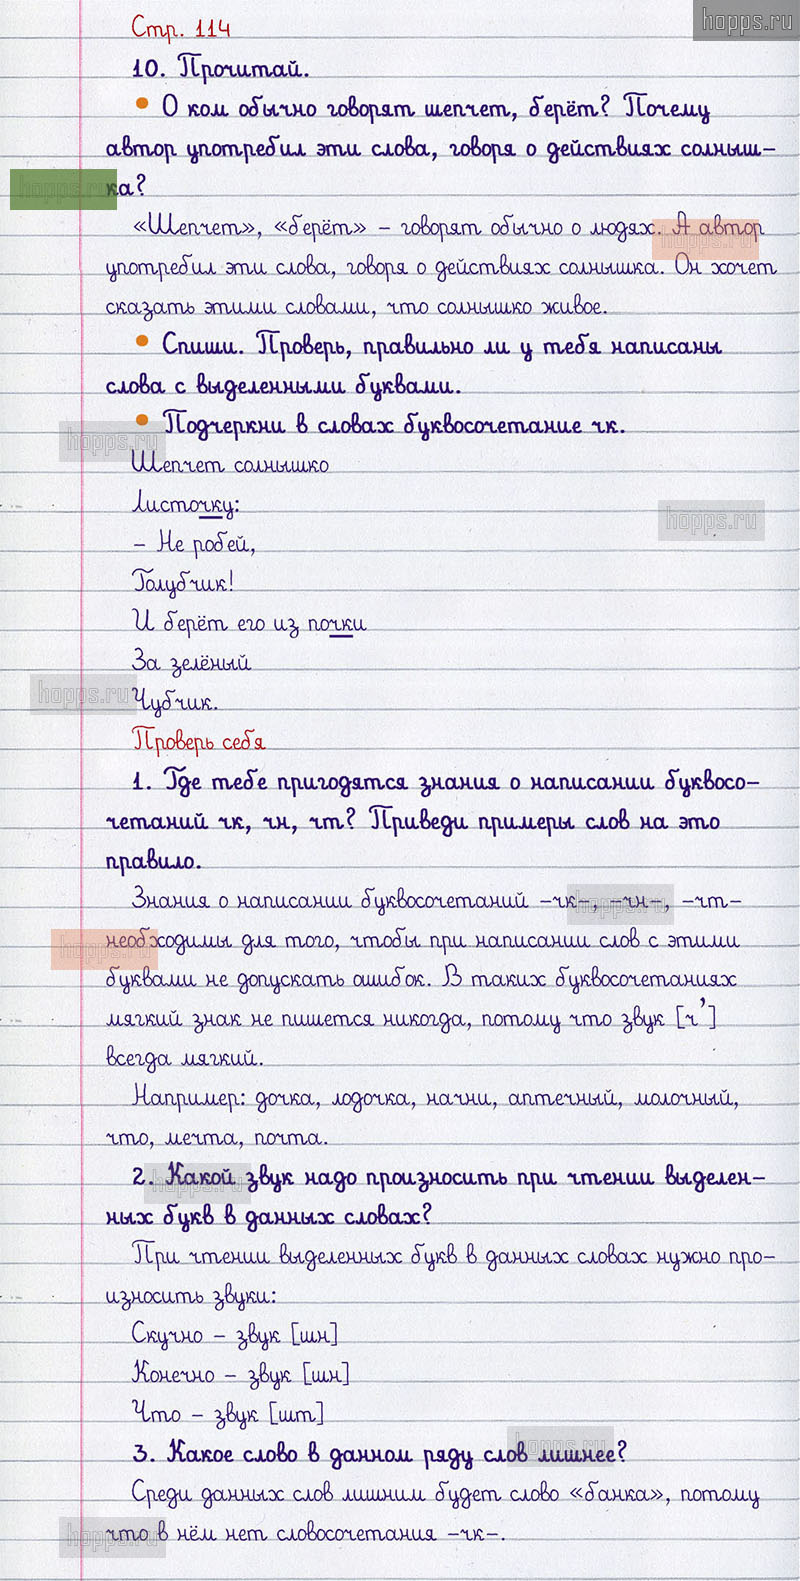 hopps.ru
Стр. 114
10. Прочитай.
• О ком обычно говорят шепчет, берёт? Почему
автор употребил эти слова, говоря о действиях солныш-
ка?
hopps.ru
«Шепчет», «берёт» – говорят обычно о людях. А автор
hopps.ru
употребил эти слова, говоря о действиях солнышка. Он хочет
сказать этими словами, что солнышко живое.
• Спиши. Проверь, правильно ли у тебя написаны
слова с выделенными буквами.
• Подчеркни в словах буквосочетание чк.
hopps.ru
Шепчет солнышко
Листочку:
hopps.ru
– Не робей,
Голубчик!
И берёт его из почки
За зелёный
hopps.ru
Чубчик.
Проверь себя
1. Где тебе пригодятся знания о написании буквосо-
четаний чк, чн, чт? Приведи примеры слов на это
правило.
Знания о написании буквосочетаний –чк–, –чн–, –чт–
hopps.ru
необходимы для того, чтобы при написании слов с этими
hopps.ru
буквами не допускать ошибок. В таких буквосочетаниях
мягкий знак не пишется никогда, потому что звук [ч’]
всегда мягкий.
Например: дочка, лодочка, начни, аптечный, молочный,
что, мечта, почта.
2. Какой звук надо произносить при чтении выделен-
hopps.ru
ных букв в данных словах?
При чтении выделенных букв в данных словах нужно про-
износить звуки:
Скучно – звук [шн]
Конечно – звук [шн]
Что – звук [шт]
3. Какое слово в данном ряду слов лишнее?
hopps.ru
Среди данных слов лишним будет слово «банка», потому
что в нём нет словосочетания –чк–.
hopps.ru